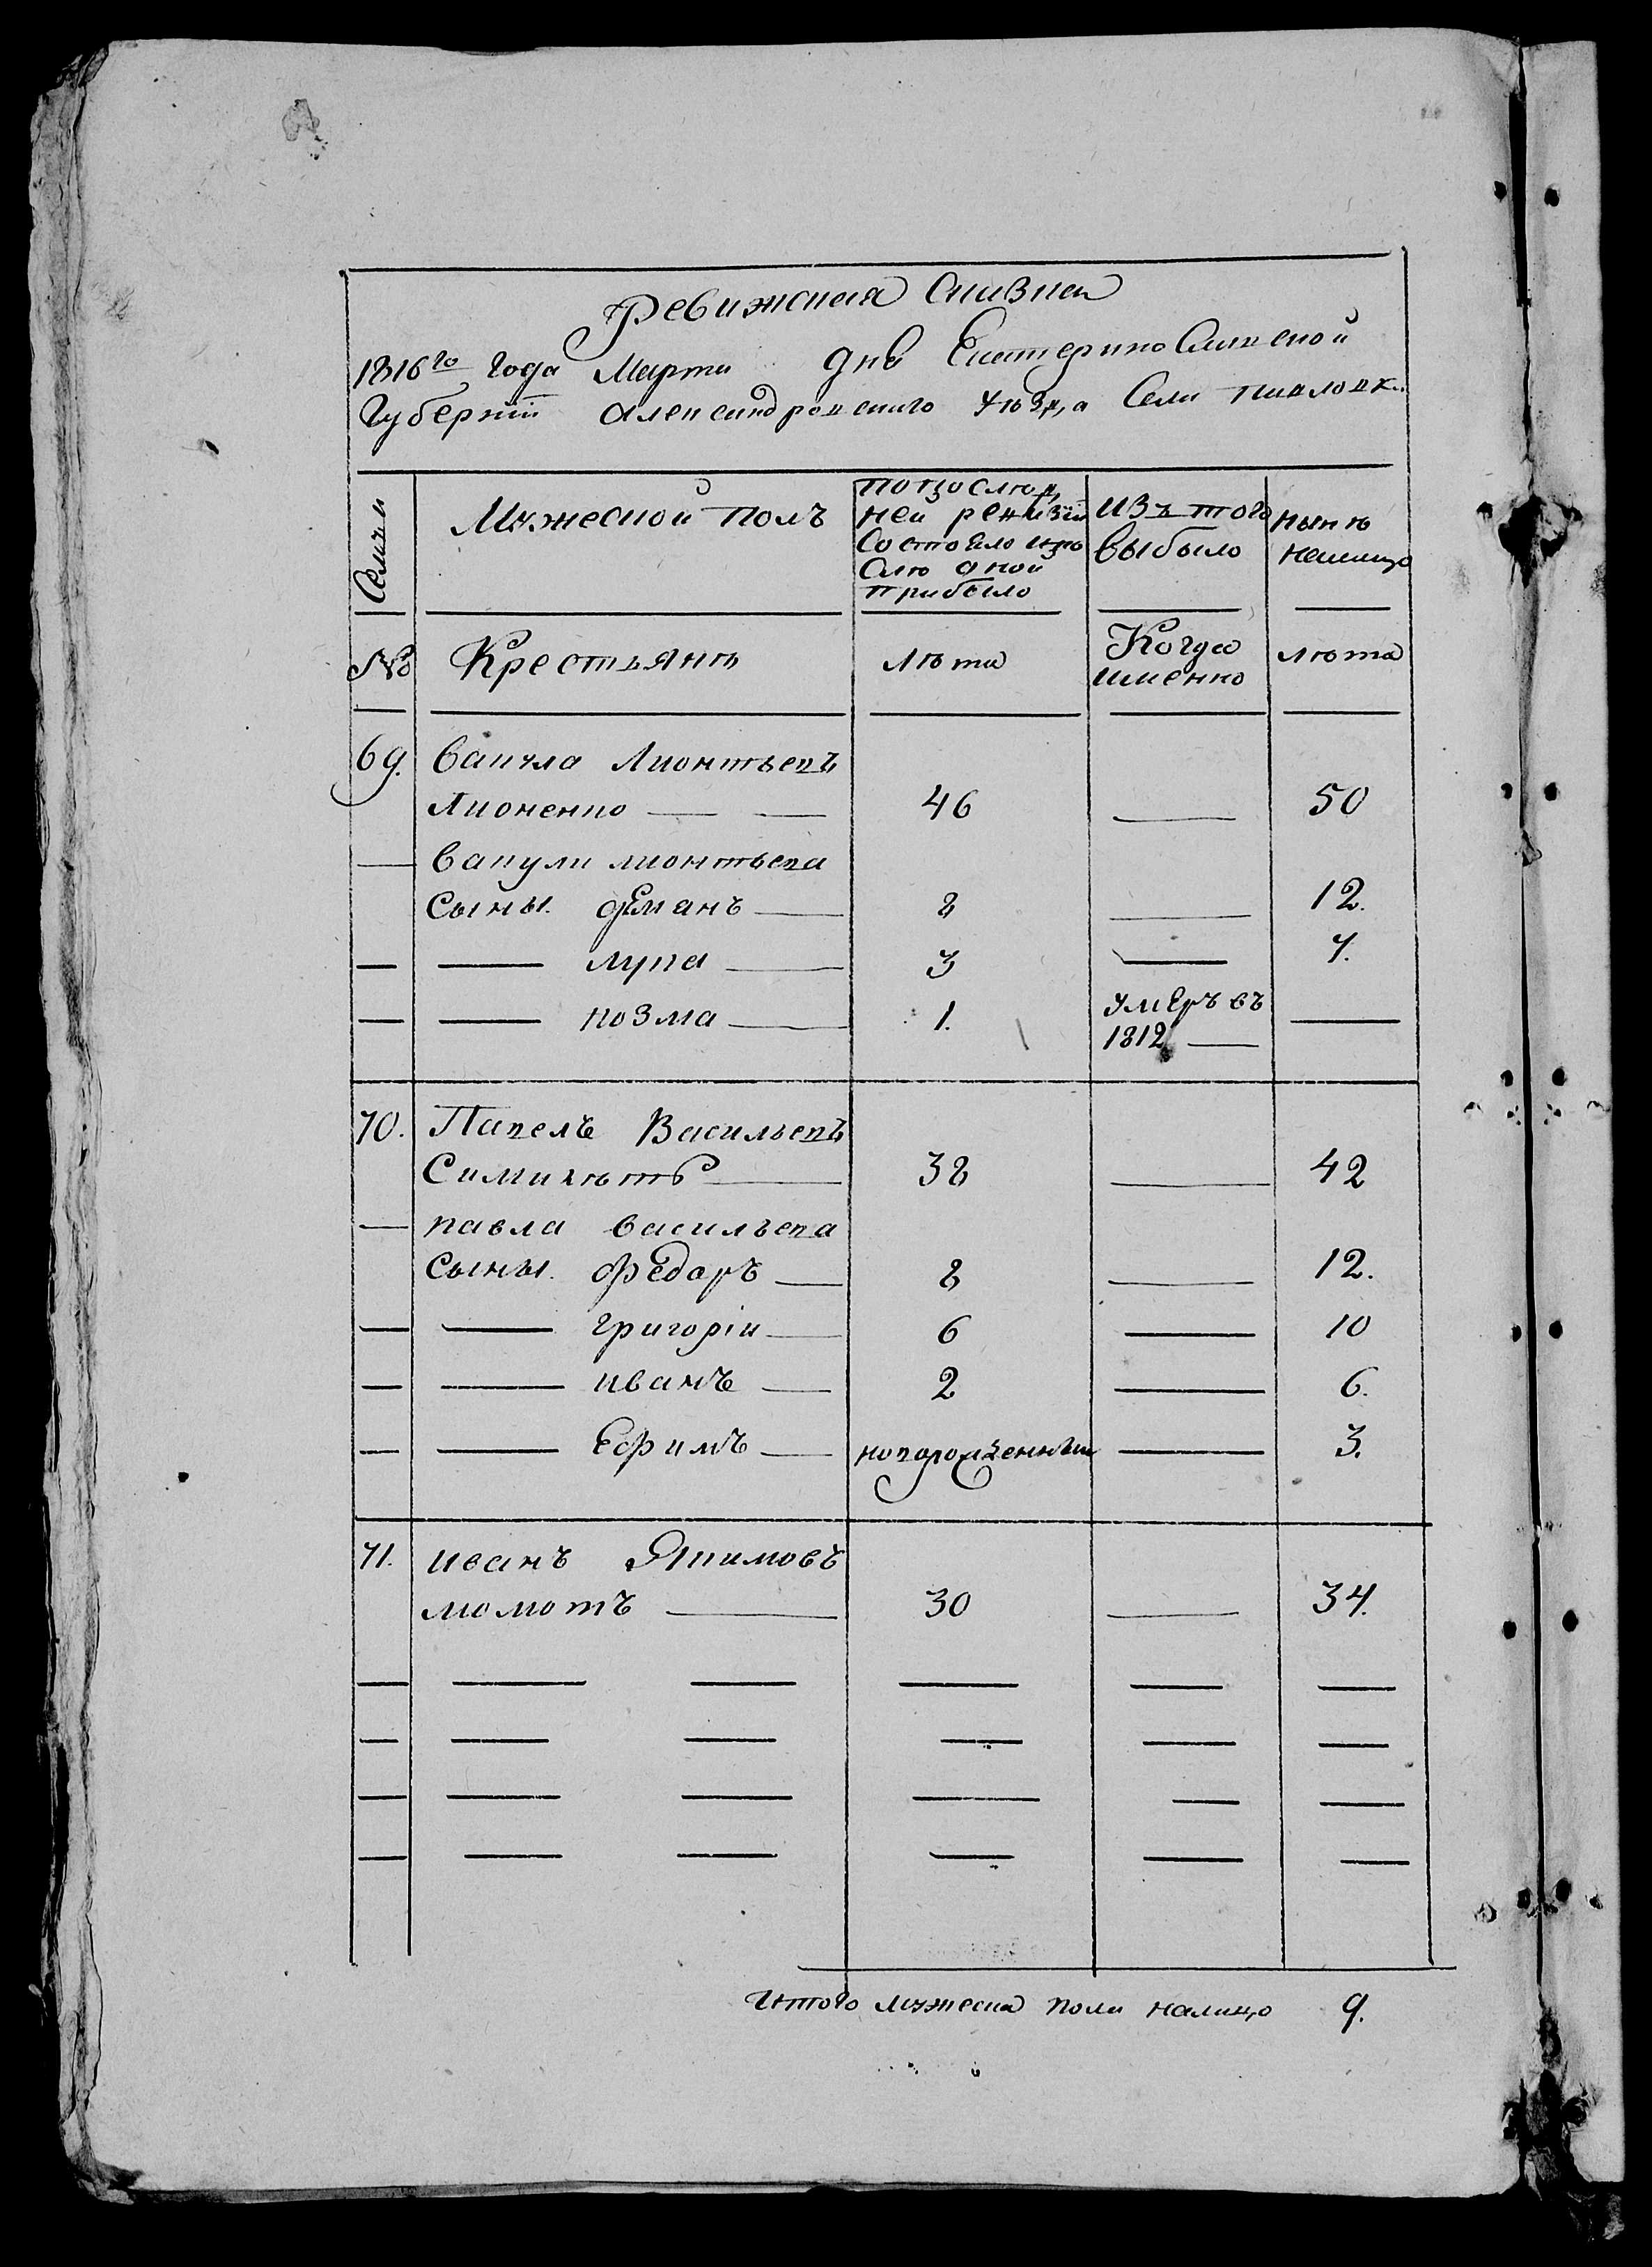 Ревижская Сказка
1816го года Марта дня Екатеринославской
Губернiи Александровского уѣзда Села Павловки
Семьи
Мужеской полъ
По послед
ней ревизiи
Состояло и по
слѣ оной
прибыло
Изъ того
выбыло
нынѣ
налицо
№
Крестьянѣ
лѣта
Когда
именно
лѣта
69. Вакула Лионтьевъ
Лионенко 46 50
Вакули лионтьева
Сыны. деманъ 8 12.
лука 3 7.
козма 1. умеръ въ
1812
70. Павелъ Васильевъ
Симихатъ 38 42
павла васильева
Сыны. федаръ 8 12.
григорiи 6 10
иванъ 2 6.
Ефимъ новорожденныи 3.
71. иванъ Якимовъ
момотъ 30 34.
Итого мужеска пола налицо 9.